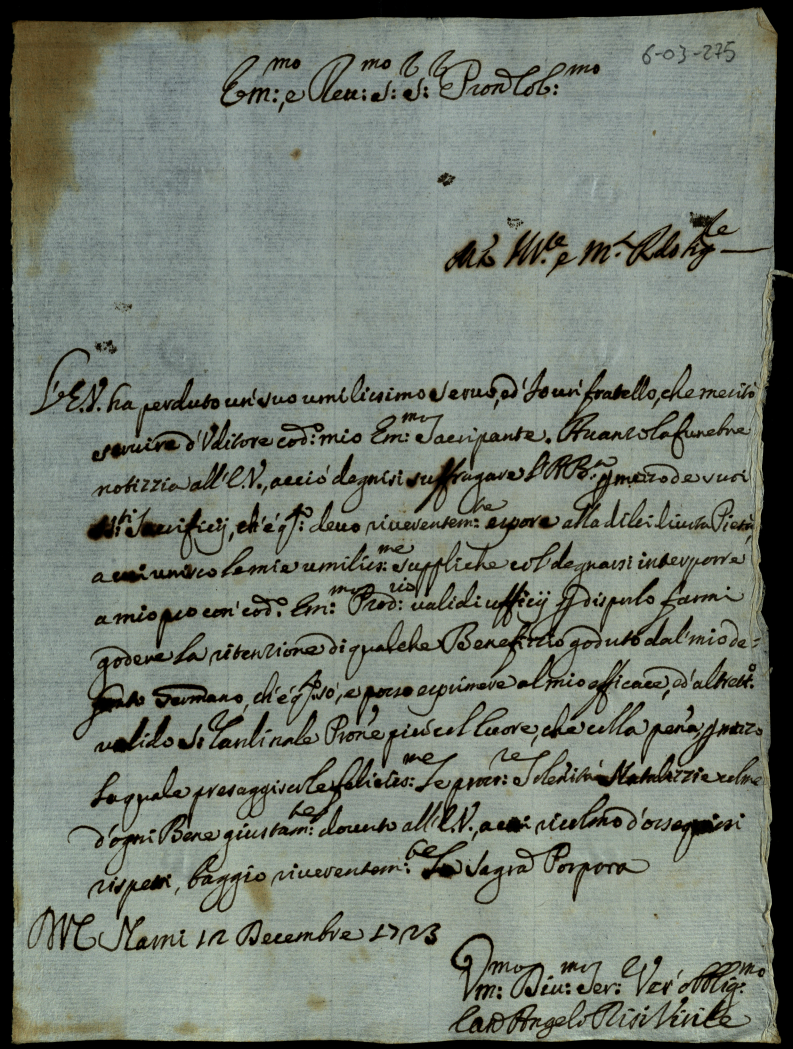 6-03-275
Em:mo, e Reu:mo S:r S:r Pron Col:mo
L'E.V. ha perduto un' suo umilissimo seruo, ed' Io un' fratello, che meritò
seruire d'Vditore cod:o mio Em:mo Sacripante. Auanzo la funebre
notizzia all'E.V., acciò degnisi suffragare mezzo de suoi
Sacrificij, ch'è deuo riuerentem:te esporre alla di lei Pietà,
a cui unisco le mie umiliss:me suppliche col degnarsi interporre
a mio pro con' cod:o Em:mo Prod:rio validi ufficij disporlo farmi
godere la ritenzione di qualche Benefizio goduto dal mio de=
Germano, ch'è so, e posso esprimere al mio efficace, ed' altret:o
valido S:r Cardinale Prone più col Cuore, che colla pena, mezzo
la quale presaggiscole felicis:me Le pross:e Solennità Natalizzie colme
d'ogni Bene giustam:te douuto all'E.V., a cui ricolmo d'ossequiosi
rispetti, baggio riuerentem:te La Sagra Porpora
Narni 12 Decembre 1723
Vm:mo Diu:mo Ser: Ver' obblig:mo
Angelo